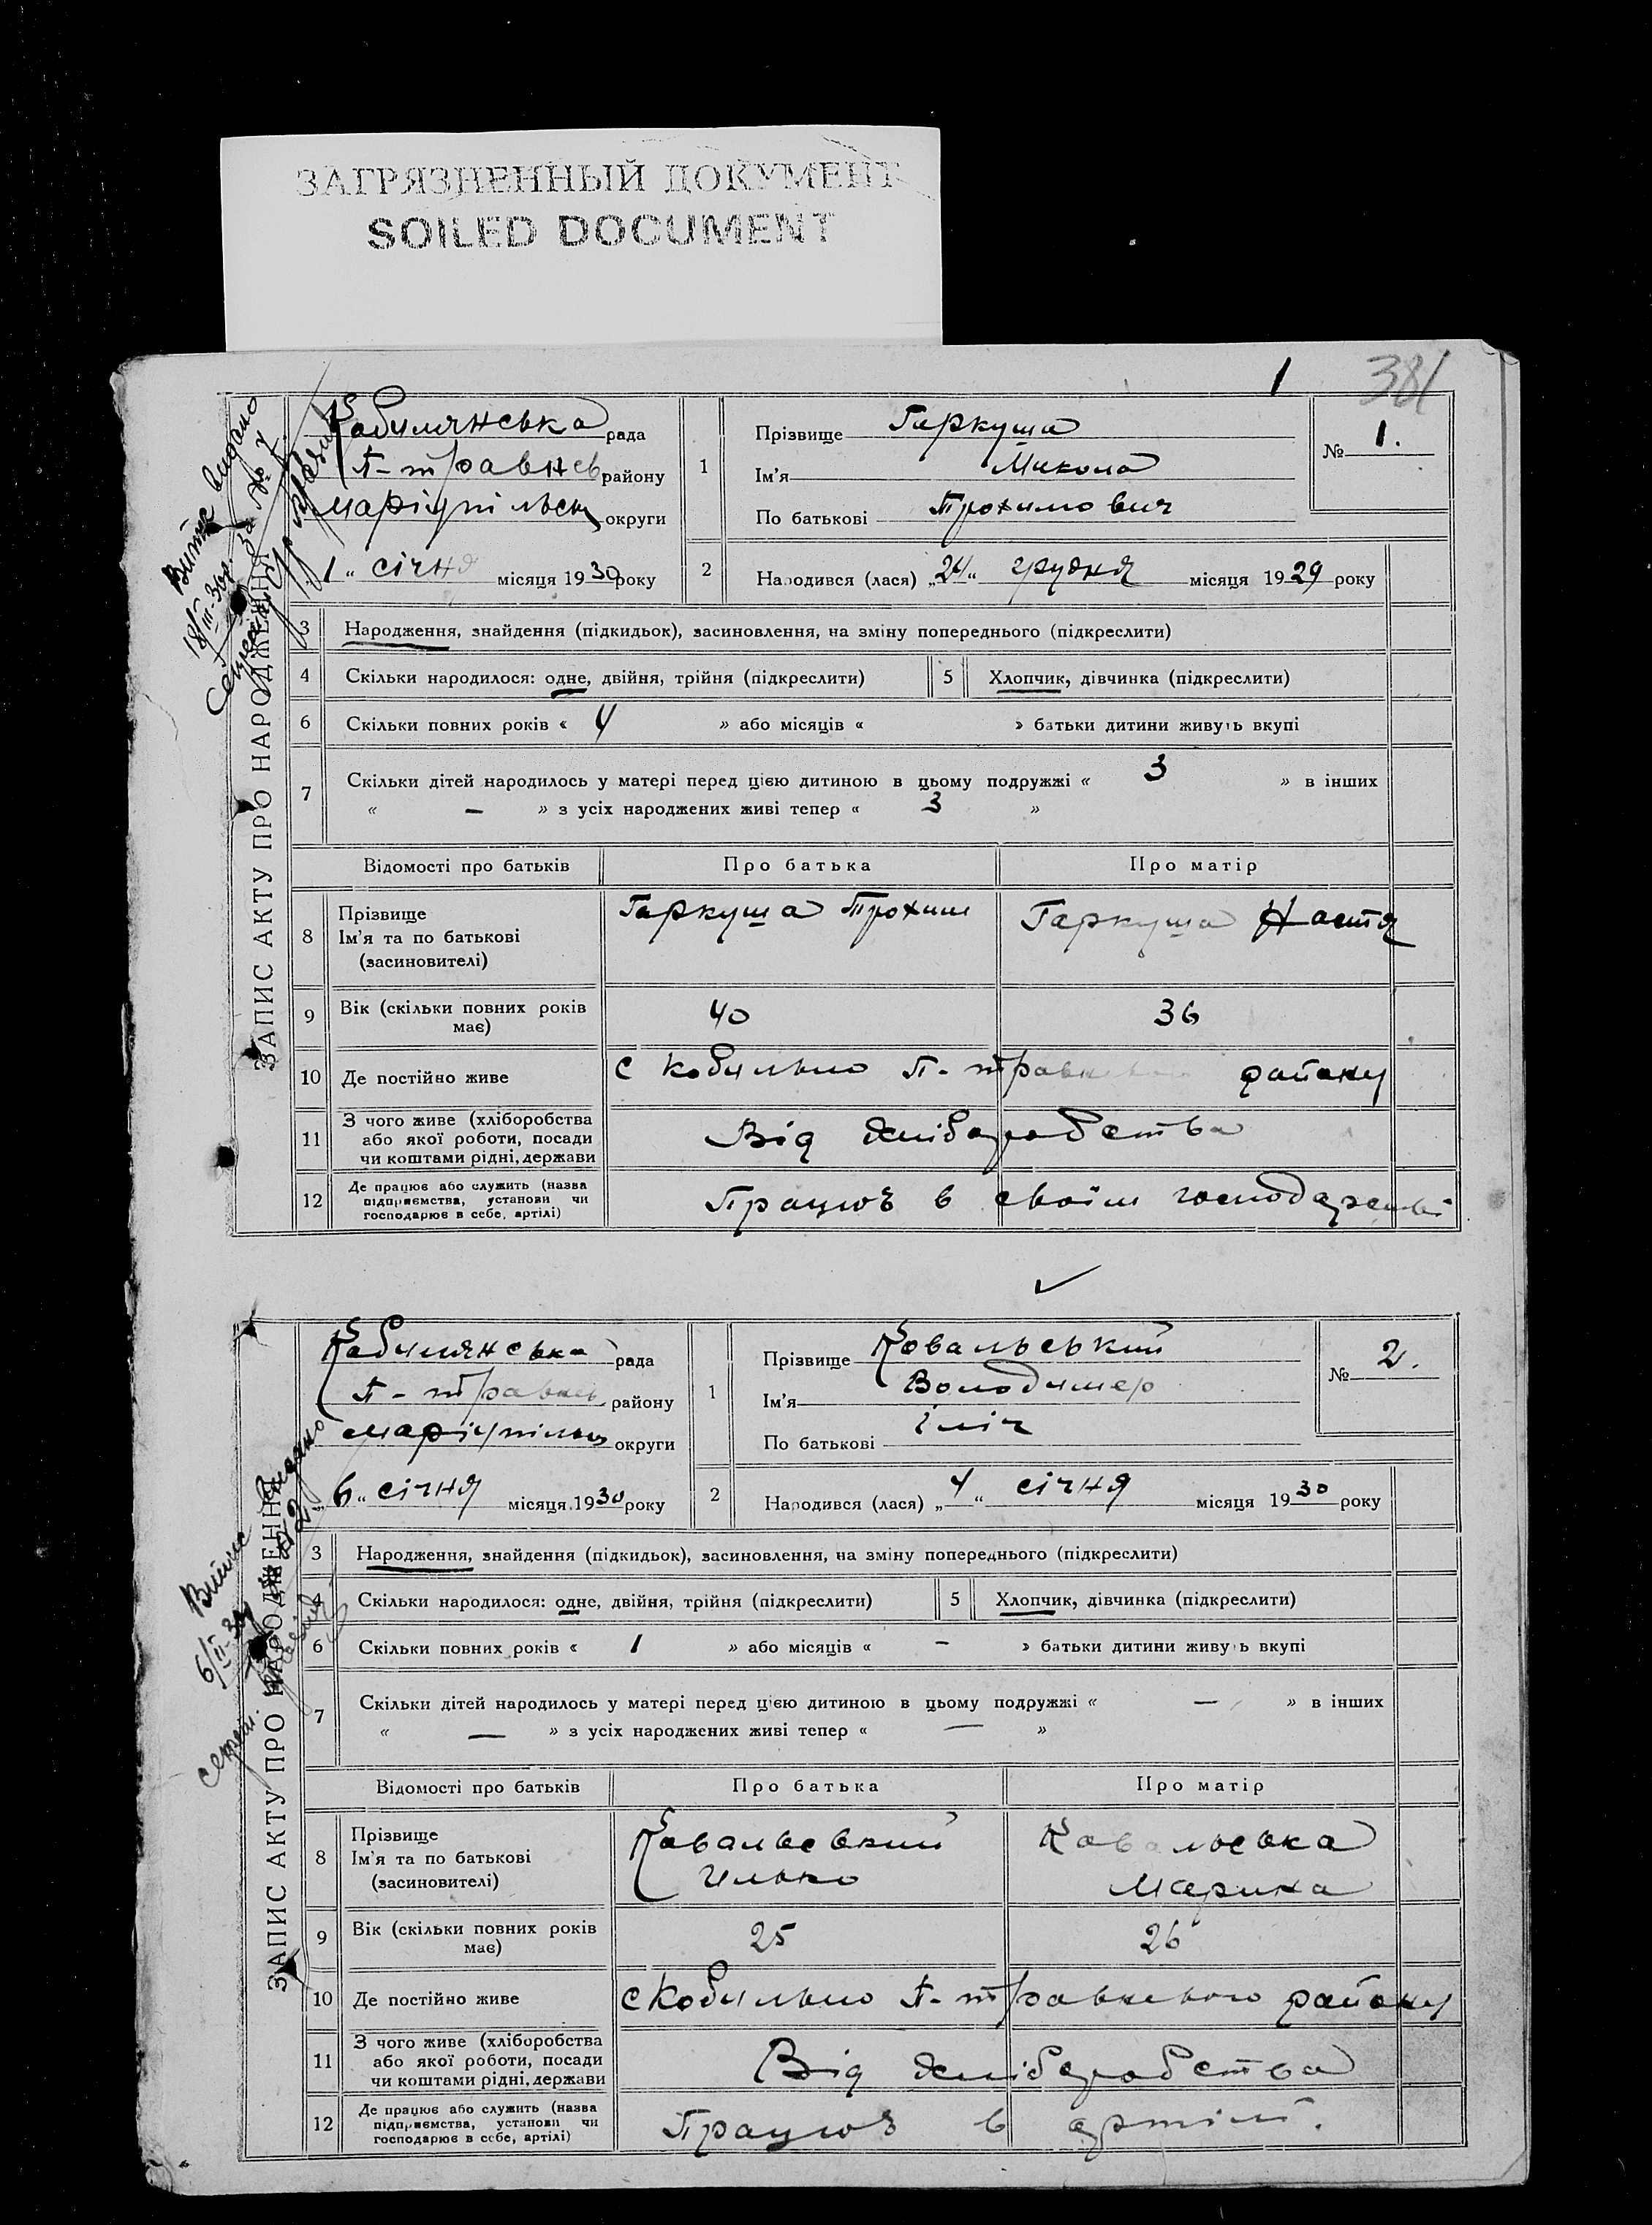 ЗАГРЯЗНЕННЫЙ ДОКУМЕНТ
SOILED DOCUMENT
1
381
Кобилянська рада
П-травнев району
Маріупільськ округи
„1“ січня місяця 1930 року
1
Прізвище Гаркуша
Ім'я Микола
По батькові Трохимович
№ 1.
2
Народився (лася) „24“ грудня місяця 1929 року
Витяг видано
18/III-30р. за № 7
ЗАПИС АКТУ ПРО НАРОДЖЕННЯ
3 Народження, знайдення (підкидьок), засиновлення, на зміну попереднього (підкреслити)
4 Скільки народилося: одне, двійня, трійня (підкреслити) 5 Хлопчик, дівчинка (підкреслити)
6 Скільки повних років « 4 » або місяців « » батьки дитини живуть вкупі
7 Скільки дітей народилось у матері перед цією дитиною в цьому подружжі « 3 » в інших
« — » з усіх народжених живі тепер « 3 »
Відомості про батьків Про батька Про матір
8 Прізвище
Ім'я та по батькові
(засиновителі)
Гаркуша Трохим Гаркуша Настя
9 Вік (скільки повних років має) 40 36
10 Де постійно живе с Кобильно П-травневого району
11 З чого живе (хліборобства
або якої роботи, посади
чи коштами рідні, держави
Від хліборобства
12 Де працює або служить (назва
підприємства, установи чи
господарює в себе, артілі)
Працює в своїм господарстві
Кобилянська рада
П-травнев району
Маріупільськ округи
„6“ січня місяця 1930 року
1
Прізвище Ковальський
Ім'я Володимер
По батькові Ілліч
№ 2.
2
Народився (лася) „4“ січня місяця 1930 року
Витяг видано
6/II-30р № 2
ЗАПИС АКТУ ПРО НАРОДЖЕННЯ
3 Народження, знайдення (підкидьок), засиновлення, на зміну попереднього (підкреслити)
4 Скільки народилося: одне, двійня, трійня (підкреслити) 5 Хлопчик, дівчинка (підкреслити)
6 Скільки повних років « 1 » або місяців « – » батьки дитини живуть вкупі
7 Скільки дітей народилось у матері перед цією дитиною в цьому подружжі « — » в інших
« — » з усіх народжених живі тепер « — »
Відомості про батьків Про батька Про матір
8 Прізвище
Ім'я та по батькові
(засиновителі)
Ковальський Ковальська
Илько Марина
9 Вік (скільки повних років має) 25 26
10 Де постійно живе с Кобильно П-травневого району
11 З чого живе (хліборобства
або якої роботи, посади
чи коштами рідні, держави
Від хліборобства
12 Де працює або служить (назва
підприємства, установи чи
господарює в себе, артілі)
Працює в артілі.